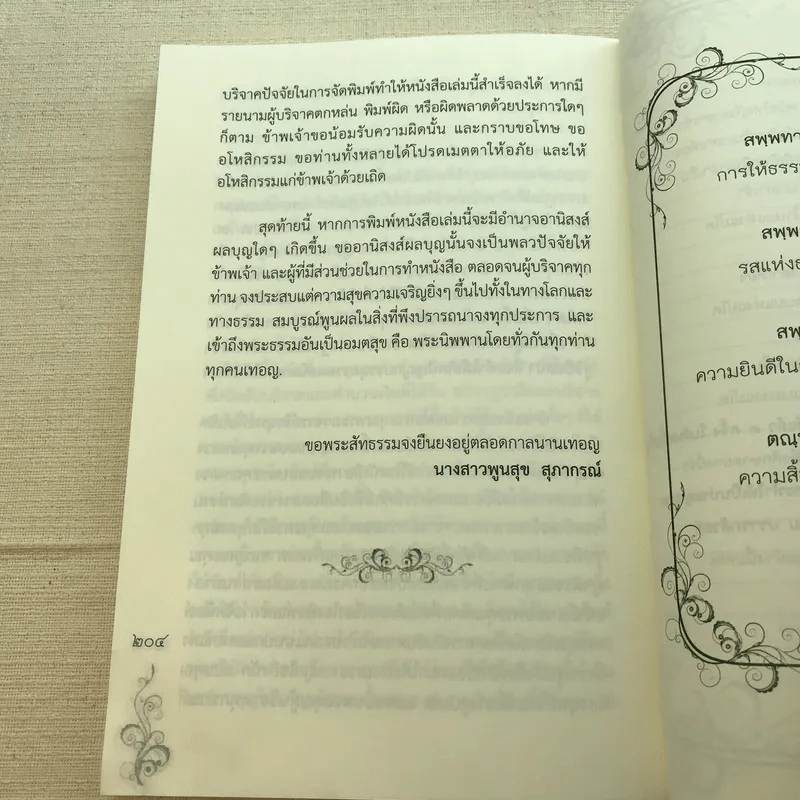 บริจาคปัจจัยในการจัดพิมพ์ทำให้หนังสือเล่มนี้สำเร็จลงได้ หากมี
รายนามผู้บริจาคตกหล่น พิมพ์ผิด หรือผิดพลาดด้วยประการใดๆ
ก็ตาม ข้าพเจ้าขอน้อมรับความผิดนั้น และกราบขอโทษ ขอ
อโหสิกรรม ขอท่านทั้งหลายได้โปรดเมตตาให้อภัย และให้
อโหสิกรรมแก่ข้าพเจ้าด้วยเถิด
สุดท้ายนี้ หากการพิมพ์หนังสือเล่มนี้จะมีอำนาจอานิสงส์
ผลบุญใดๆ เกิดขึ้น ขออานิสงส์ผลบุญนั้นจงเป็นพลวปัจจัยให้
ข้าพเจ้า และผู้ที่มีส่วนช่วยในการทำหนังสือ ตลอดจนผู้บริจาคทุก
ท่าน จงประสบแต่ความสุขความเจริญยิ่งๆ ขึ้นไปทั้งในทางโลกและ
ทางธรรม สมบูรณ์พูนผลในสิ่งที่พึงปรารถนาจงทุกประการ และ
เข้าถึงพระธรรมอันเป็นอมตสุข คือ พระนิพพานโดยทั่วกันทุกท่าน
ทุกคนเทอญ.
ขอพระสัทธรรมจงยืนยงอยู่ตลอดกาลนานเทอญ
นางสาวพูนสุข สุภากรณ์
๒๐๔
สพฺพทา
การให้ธรร
สพฺพ
รสแห่งธ
สพฺ
ความยินดีใน
ตณฺ
ความสิ้